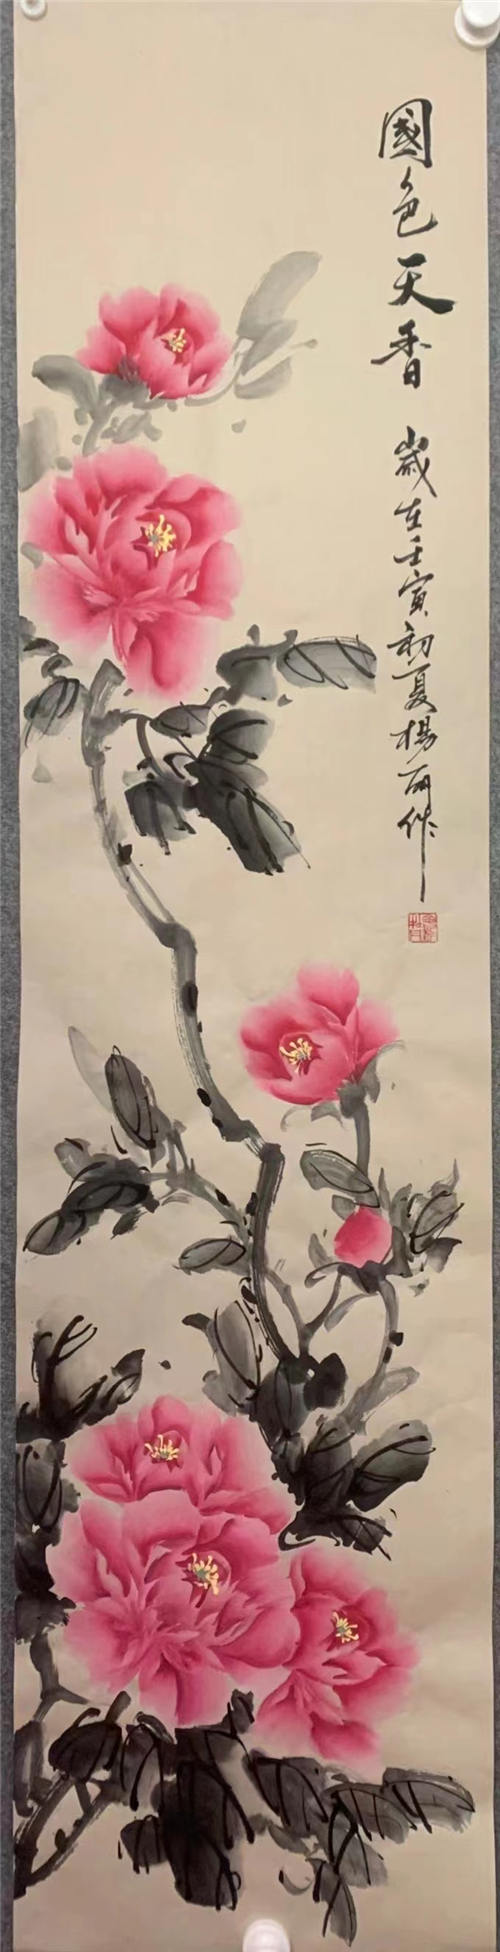 國色天香 歲在壬寅初夏楊丽作